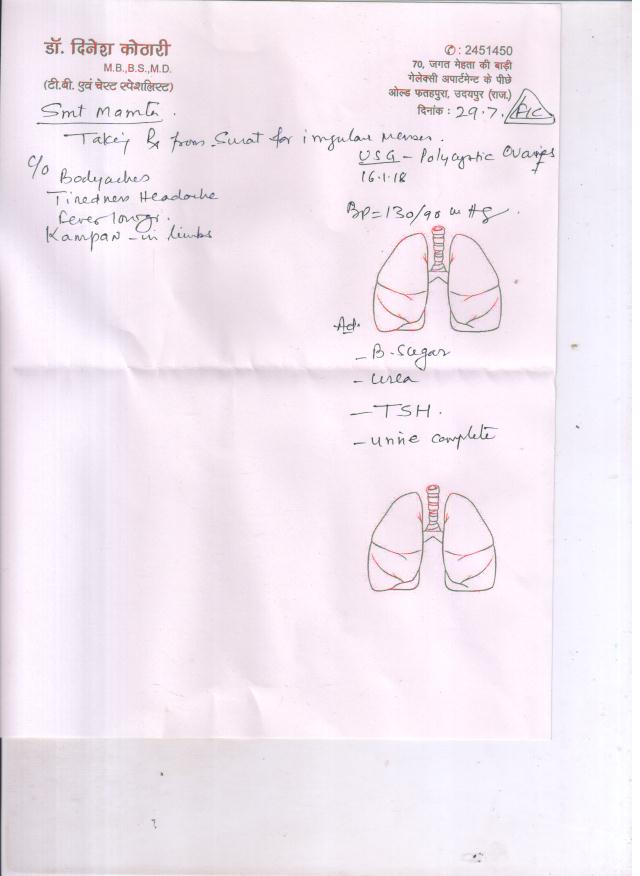 डॉ. दिनेश कोठारी
M.B.,B.S.,M.D.
(टी.बी. एवं चेस्ट स्पेशलिस्ट)
✆: 2451450
70, जगत मेहता की बाड़ी
गेलेक्सी अपार्टमेन्ट के पीछे
ओल्ड फतहपुरा, उदयपुर (राज.)
दिनांक : 29.7.
Smt Mamta.
Taking Rx from Surat for irregular menses.
USG - Polycystic Ovaries +
16.1.18
C/o Bodyaches
Tiredness Headache
Fever
Kampan - in limbs
BP = 130/90 m Hg.
Ad.
- B. Sugar
- Urea
- TSH.
- Urine complete